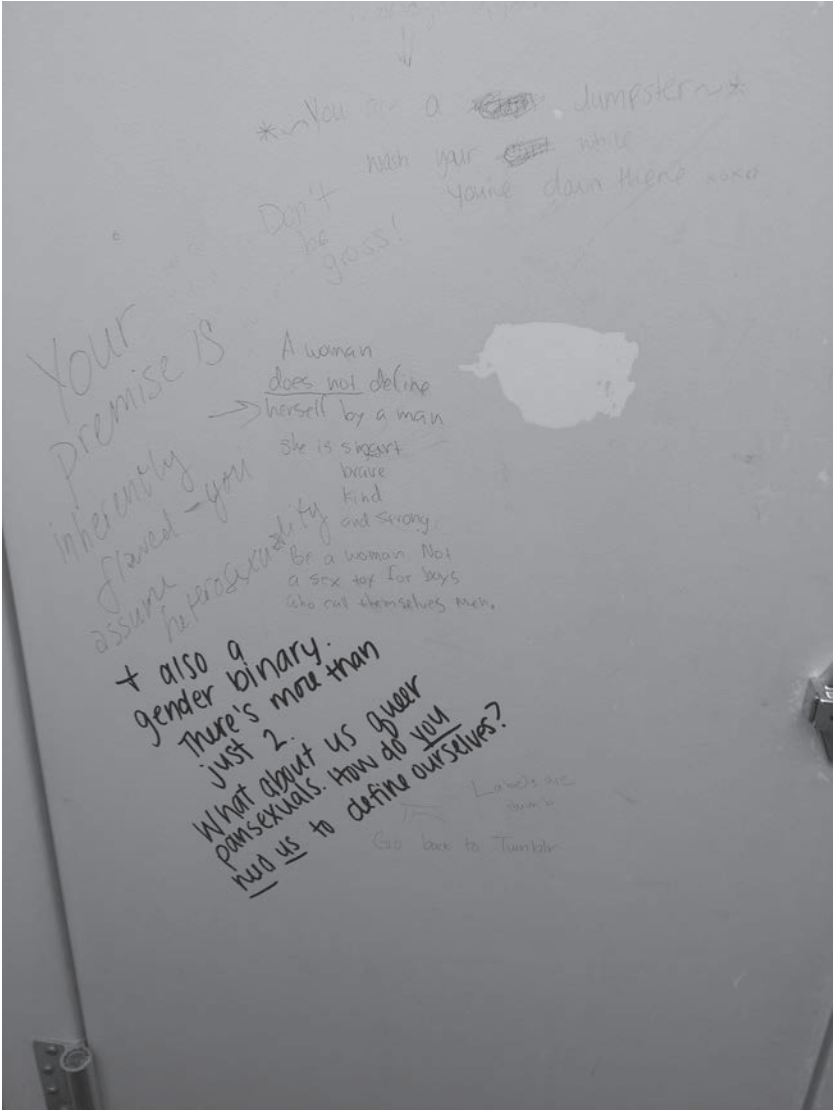 *~You are a dumpster~*
wash your while
you're down there xoxo
Don't
be
gross!
Your
premise is
inherently
flawed - you
assume
heterosexuality
A woman
does not define
herself by a man
she is smart
brave
kind
and strong.
Be a woman. Not
a sex toy for boys
who call themselves men.
+ also a
gender binary.
There's more than
just 2.
What about us queer
pansexuals. How do you
need us to define ourselves?
Labels are
dumb
Go back to Tumblr